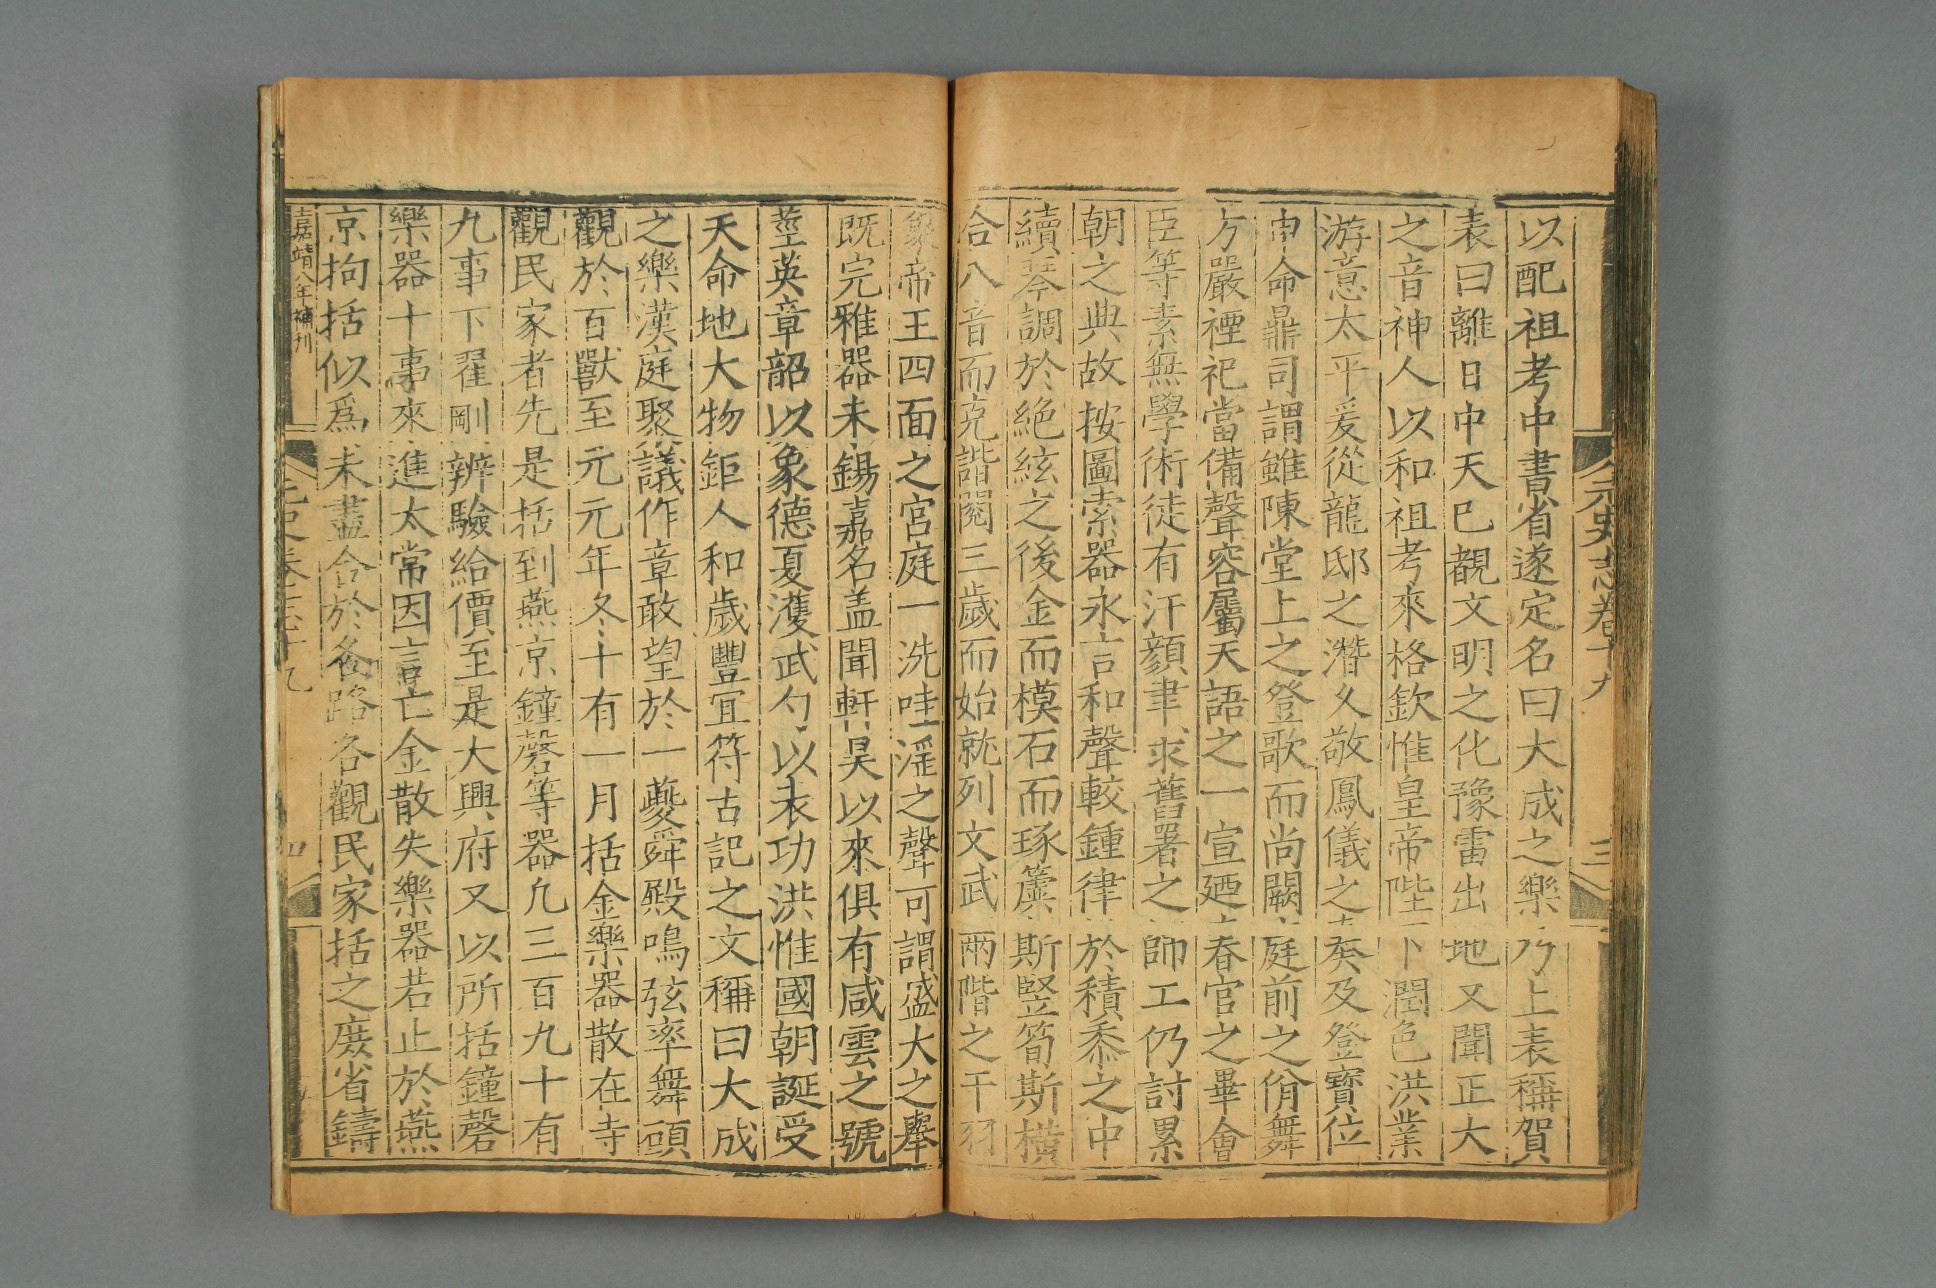 元史志卷十九
三
以配祖考中書省遂定名曰大成之樂乃上表稱賀
表曰離日中天已覩文明之化豫雷出地又聞正大
之音神人以和祖考來格欽惟皇帝陛下潤色洪業
游意太平爰從龍邸之潛久敬鳳儀之奏及登寶位
申命鼎司謂雖陳堂上之登歌而尚闕庭前之佾舞
方嚴禋祀當備聲容屬天語之一宣廼春官之畢會
臣等素無學術徒有汗顏聿求舊署之師工仍討累
朝之典故按圖索器永言和聲較鍾律於積黍之中
續琴調於絶絃之後金而模石而琢簴斯竪筍斯横
合八音而克諧閱三歲而始就列文武兩階之干羽
象帝王四面之宮庭一洗哇滛之聲可謂盛大之舉
既完雅器未錫嘉名盖聞軒昊以來俱有咸雲之號
莖英章韶以象德夏濩武勺以表功洪惟國朝誕受
天命地大物鉅人和歲豐宜符古記之文稱曰大成
之樂漢庭聚議作章敢望於一夔舜殿鳴弦率舞頭
觀於百獸至元元年冬十有一月括金樂器散在寺
觀民家者先是括到燕京鐘磬等器凢三百九十有
九事下翟剛辨驗給價至是大興府又以所括鐘磬
樂器十事來進太常因言亡金散失樂器若止於燕
京拘括似爲未盡合於各路各觀民家括之庻省鑄
嘉靖八年補刊
元史卷志十九
四